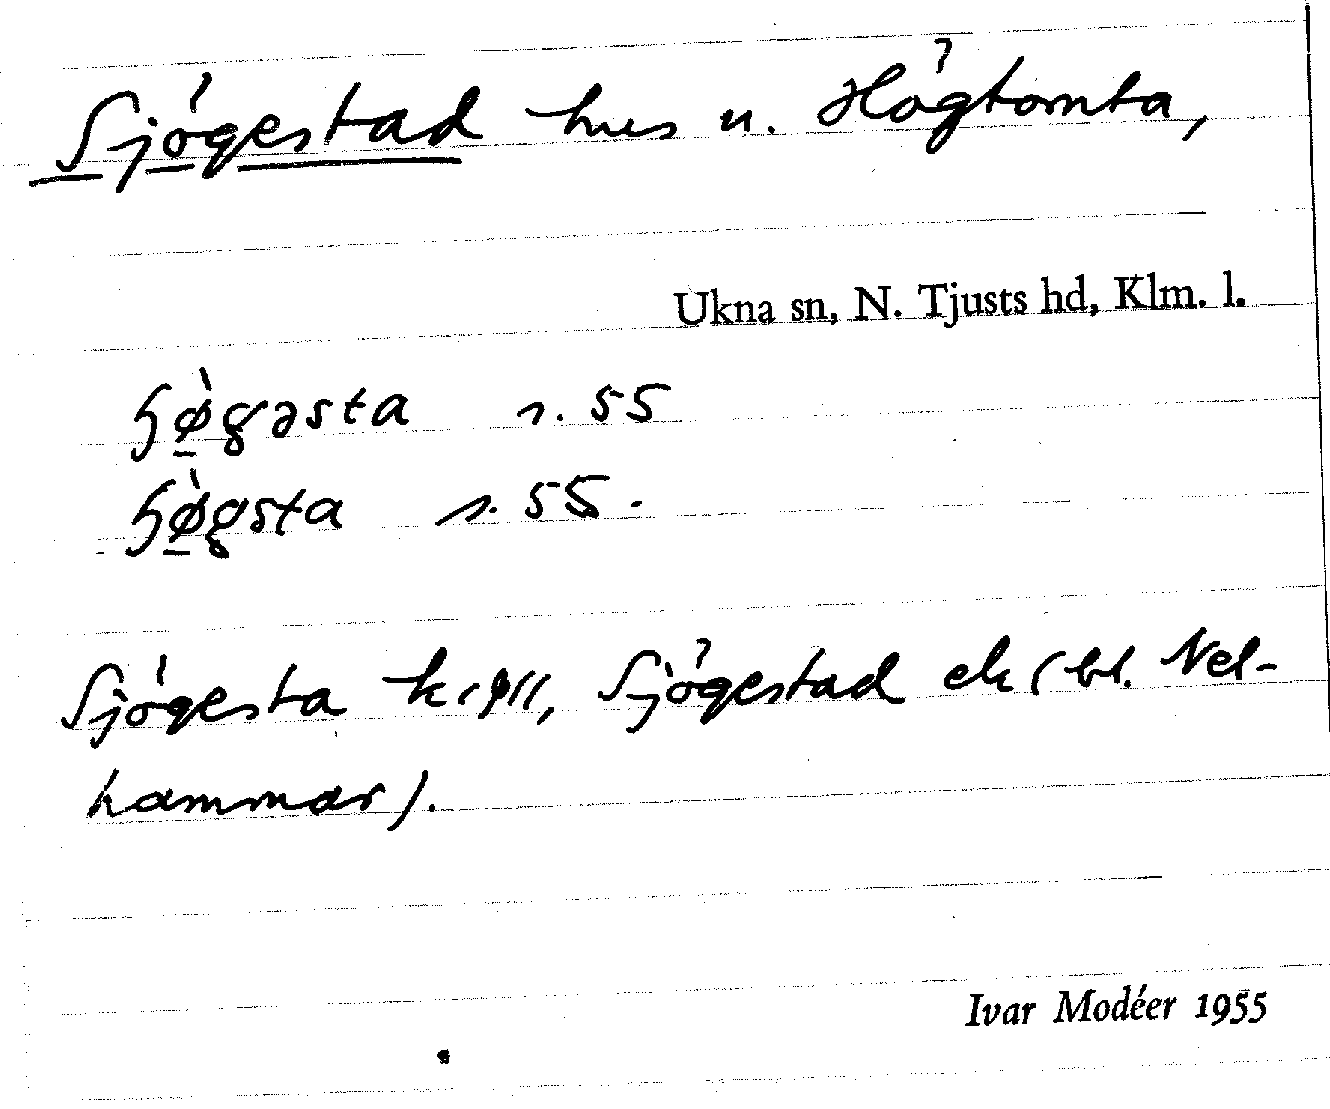 Sjögestad hus u. Högtomta,
Ukna sn, N. Tjusts hd, Klm. l.
ɧø̀gəsta s. 55
ɧø̀gsta s. 55.
Sjögesta Sjögestad ek (bl. Nel-
hammar).
Ivar Modéer 1955